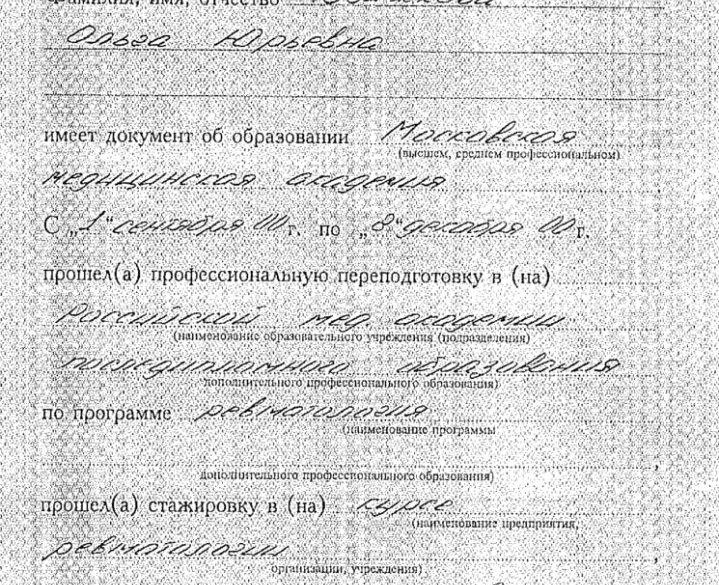 Фамилия, имя, отчество
Ольга Юрьевна
имеет документ об образовании Московская
(высшем, среднем профессиональном)
медицинская академия
С „1“ сентября 00 г. по „8“ декабря 00 г.
прошел(а) профессиональную переподготовку в (на)
Российской мед. академии
(наименование образовательного учреждения (подразделения)
последипломного образования
дополнительного профессионального образования)
по программе ревматология
(наименование программы
,
дополнительного профессионального образования)
прошел(а) стажировку в (на) курсе
(наименование предприятия,
ревматологии ,
организации, учреждения)